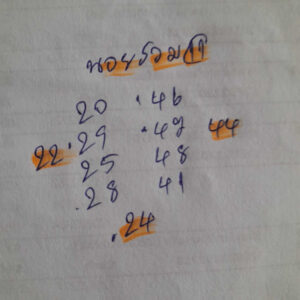 หอยร่วม 11
20 .46
22.29 .42 44
25 48
.28 41
.24